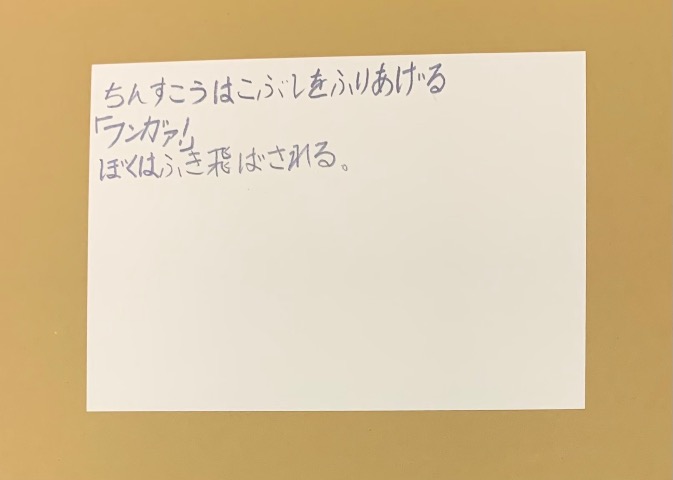 ちんすこうはこぶしをふりあげる
「フンガァ!」
ぼくはふき飛ばされる。